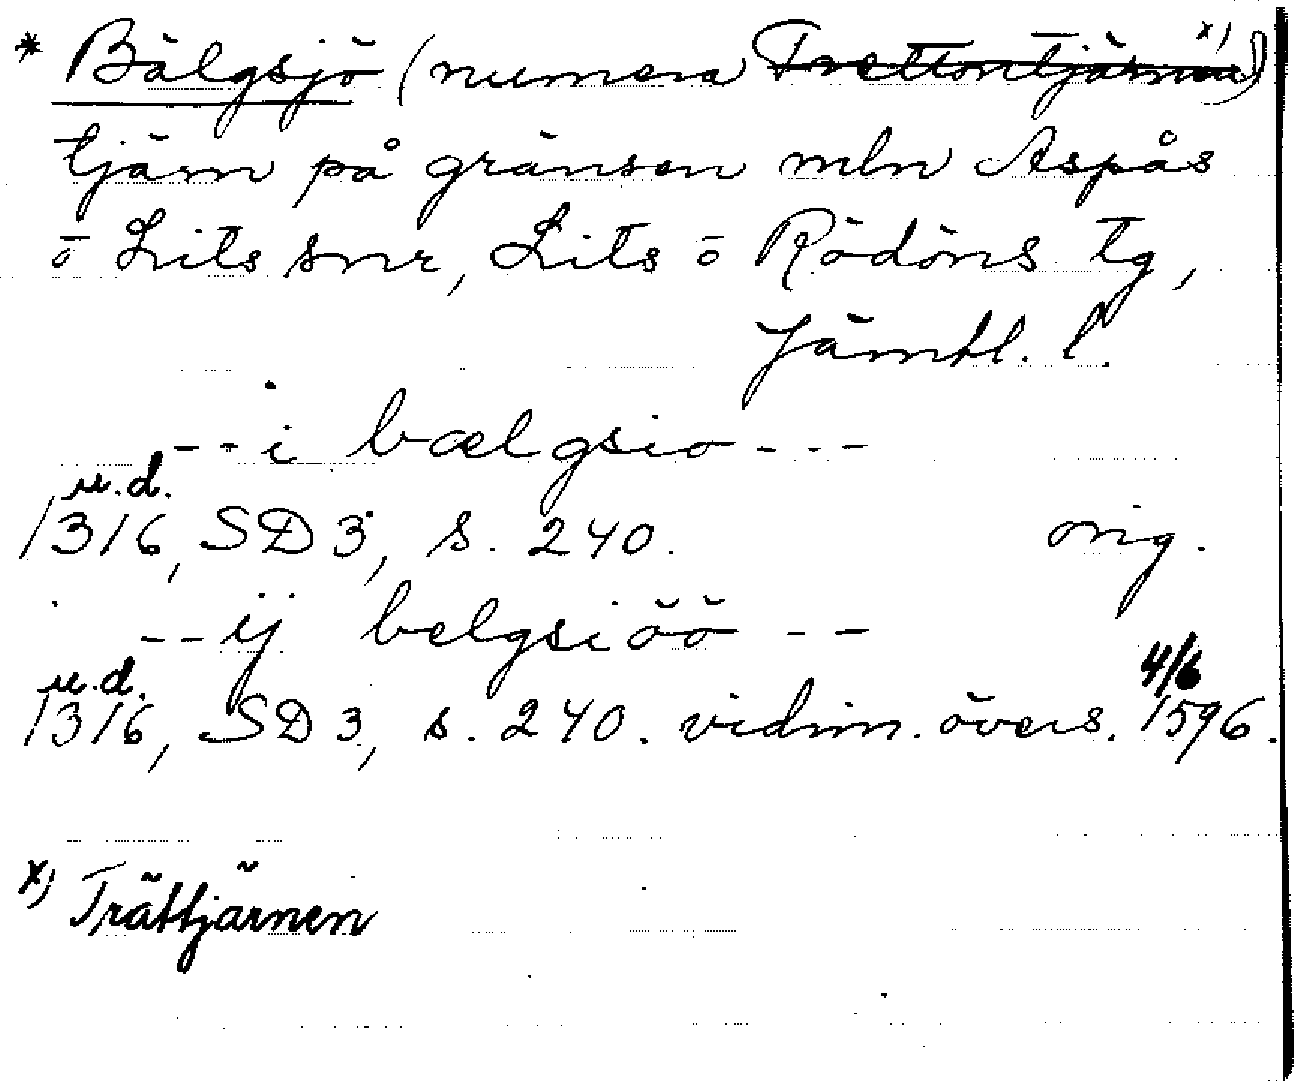 * Bälgsjö (numera Trettontjärnen x))
tjärn på gränsen mln Aspås
o Lits snr, Lits o Rödöns tg,
Jämtl. l.
-- i bælgsio ---
u.d.
1316, SD 3, s. 240. orig.
-- ij belgsiöö --
u.d. 4/6
1316, SD 3, s. 240. vidim. övers. 1596.
x) Trättjärnen